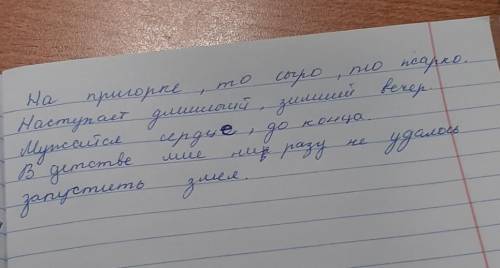 На пригорке, то сыро, то жарко.
Наступает длинный, зимний вечер.
Мужайтся сердце, до конца.
В детстве мне ни разу не удалось
запустить змея.